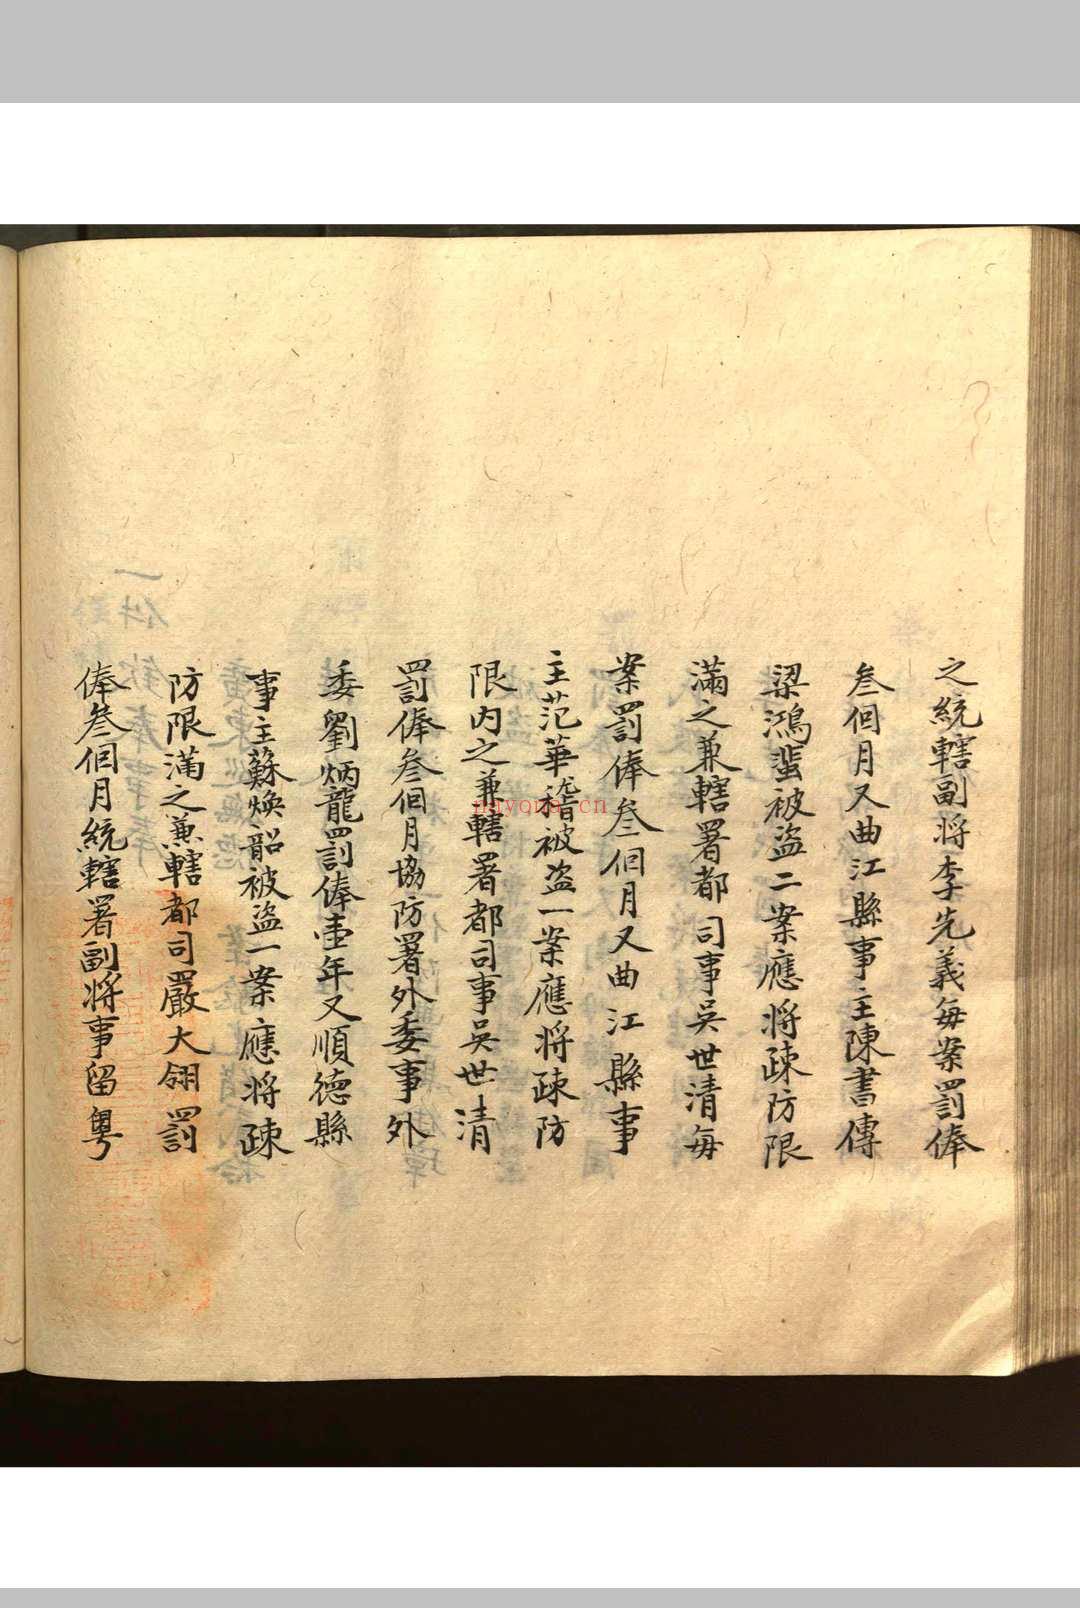 之統轄副将李先義每案罰俸
叁個月又曲江縣事主陳書傳
梁鴻蜚被盗二案應将疎防限
滿之兼轄署都司事吳世清每
案罰俸叁個月又曲江縣事
主范華稽被盗一案應将疎防
限内之兼轄署都司事吳世清
罰俸叁個月協防署外委事外
委劉炳龍罰俸壹年又順德縣
事主蘇煥韶被盗一案應将疎
防限滿之兼轄都司嚴大翎罰
俸叁個月統轄署副将事留粤
nayona.cn